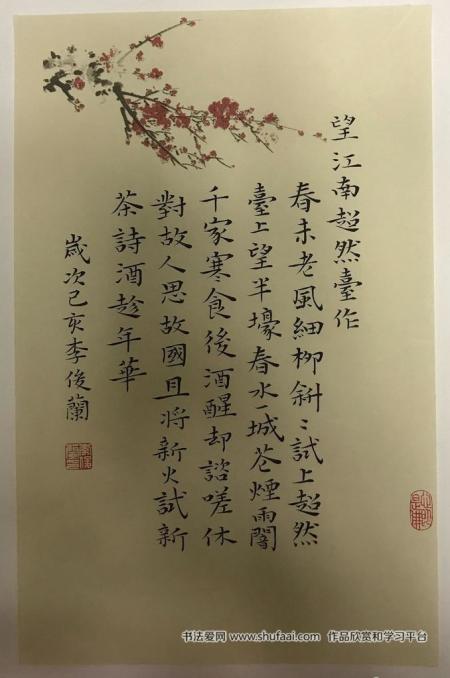 望江南超然臺作
春未老風細柳斜〻試上超然
臺上望半壕春水一城花煙雨闇
千家寒食後酒醒却諮嗟休
對故人思故國且將新火試新
茶詩酒趁年華
歲次己亥李俊蘭
书法爱网 www.shufaai.com 作品欣赏和学习平台